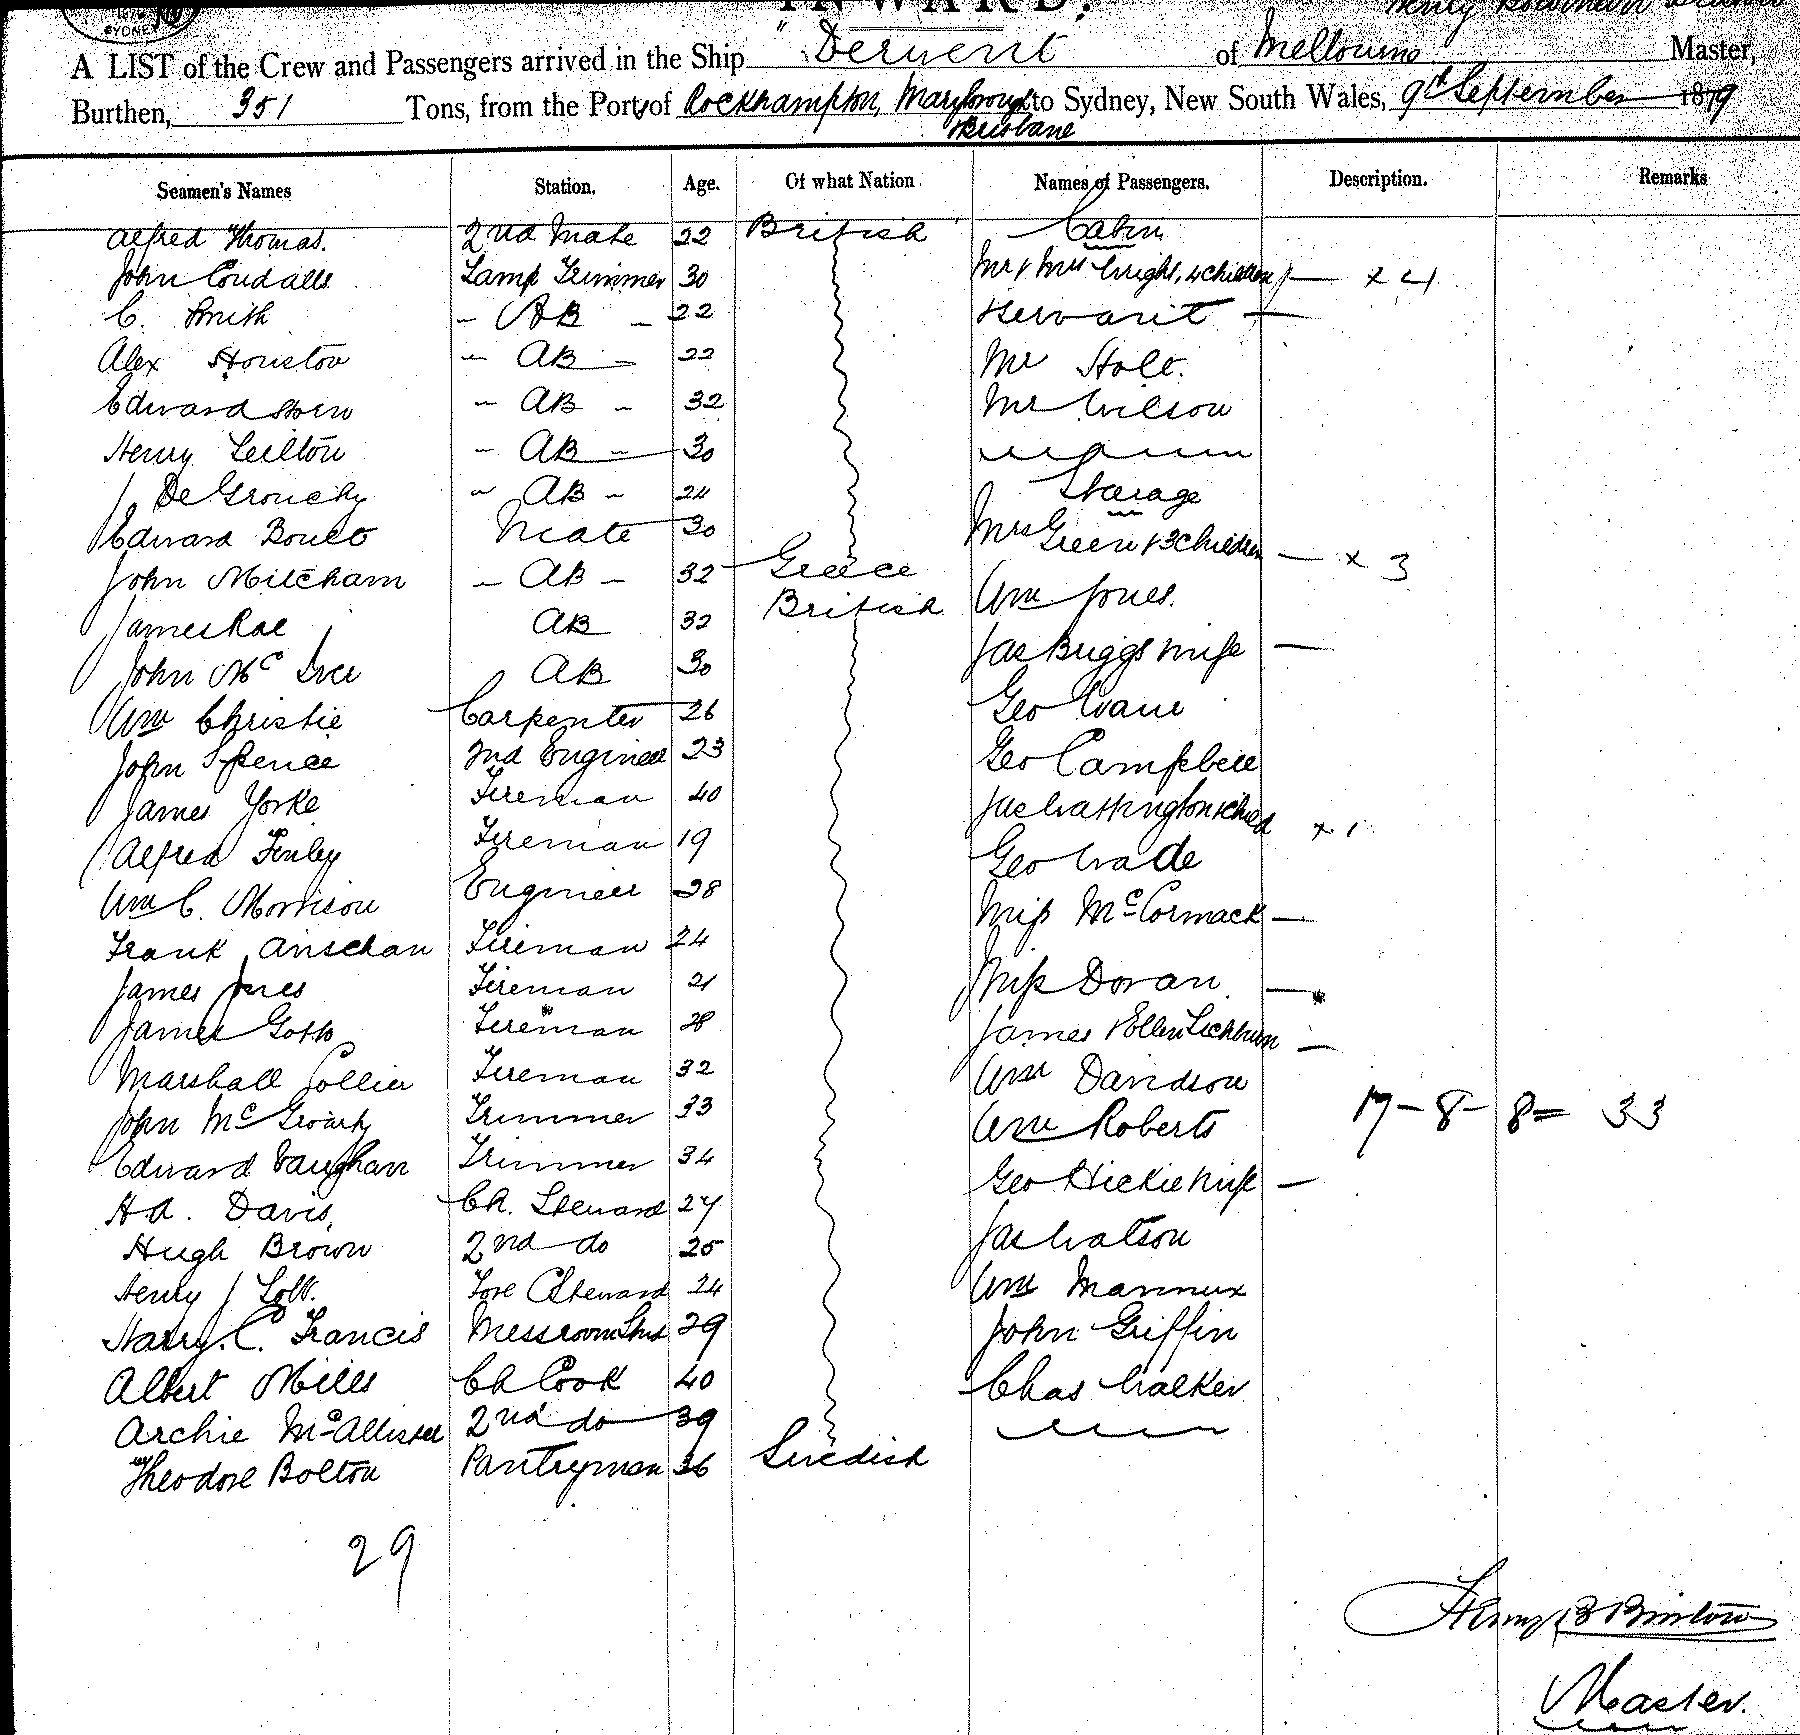 SYDNEY
INWARD.
A LIST of the Crew and Passengers arrived in the Ship "Derwent of Melbourne Master,
Burthen, 351 Tons, from the Port of Rockhampton, Maryborough to Sydney, New South Wales, 9th September 1879
Brisbane
Seamen's Names Station. Age. Of what Nation Names of Passengers. Description. Remarks
Alfred Thomas. 2nd Mate 22 British Cabin
John Lamp Trimmer 30 Mr & Mrs Wright, 4 Children — x 4
C. Smith - AB - 22 Servant —
Alex Houston - AB - 22 Mr Holt.
Edward - AB - 32 Mr Wilson
Henry - AB - 30
J. DeGrouchy - AB - 24 Steerage
Edward Mate 30 Mrs Green & 3 Children — x 3
John Mitcham - AB - 32 Greece Wm Jones.
James Rae AB 32 British Jas Briggs wife —
John Mc AB 30 Geo
Wm Christie Carpenter 26 Geo Campbell
John Spence 2nd Engineer 23 Jas Washington & Child x 1
James Yorke Fireman 40 Geo Wade
Alfred Finley Fireman 19 Miss McCormack —
Wm C. Morrison Engineer 28 Miss Doran —
Frank Fireman 24 James & Ellen
James Jones Fireman 21 Wm Davidson
James Fireman 28 Wm Roberts
Marshall Collier Fireman 32 Geo Hickie wife —
John Mc Trimmer 33 17 - 8 - 8 = 33
Edward Vaughan Trimmer 34 Jas Watson
H A. Davis, Ch. Steward 27 Wm
Hugh Brown 2nd do 25 John Griffin
Henry J Fore C Steward 24 Chas Walker
Harry. C. Francis Messroom Stwd 29
Albert Mills Ch Cook 40
Archie McAllister 2nd do 39
Theodore Bolton Pantryman 36 Swedish
29
Henry
Master.